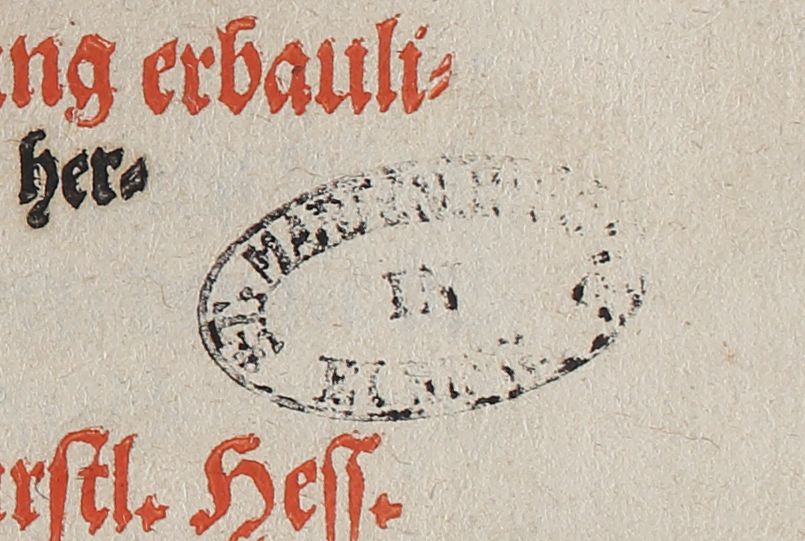 ng erbauli⸗
her⸗
ST. MARTIN
IN
rſtl. Heſſ.